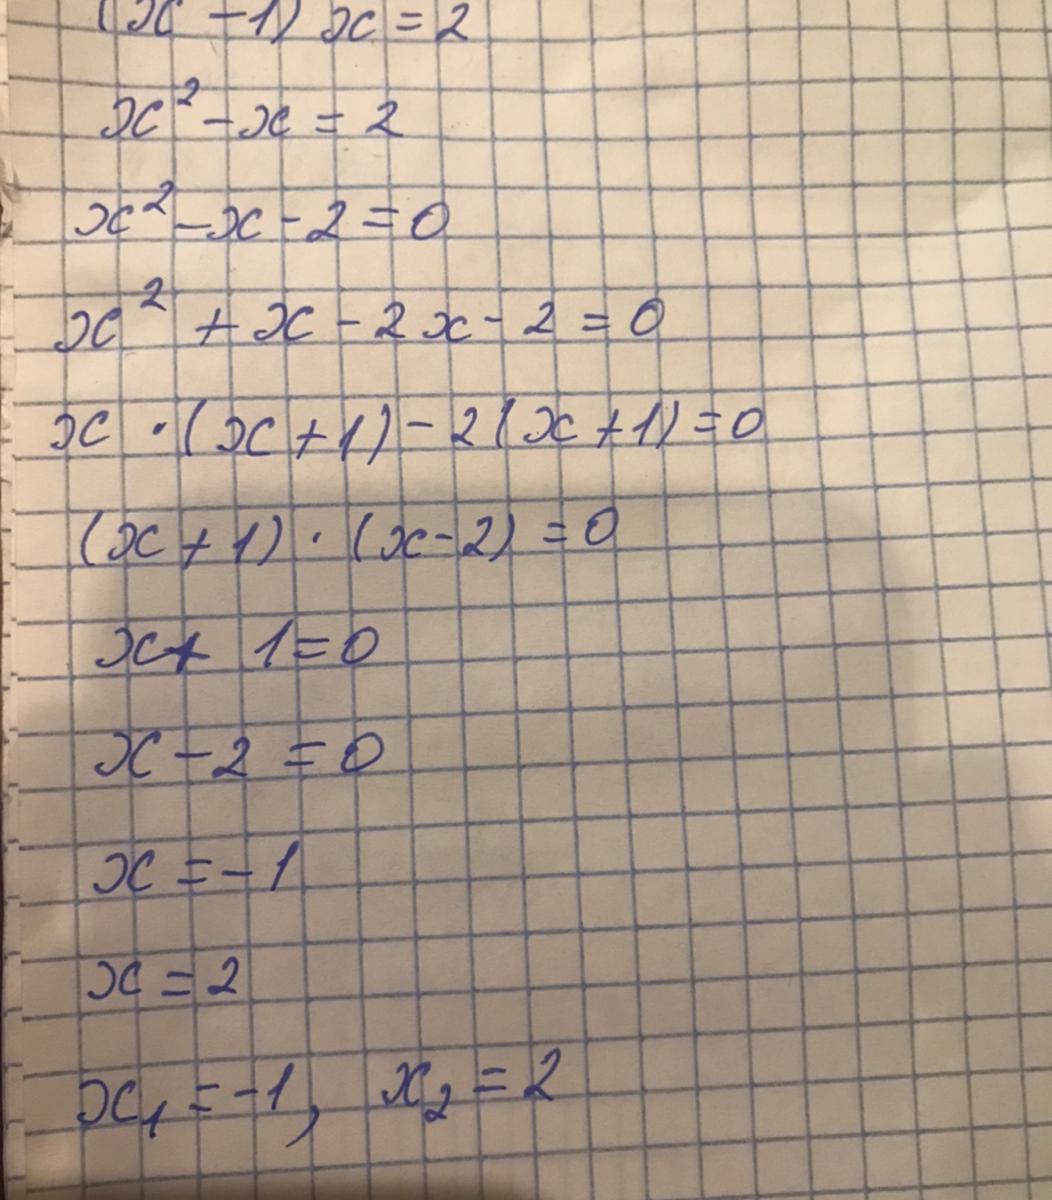 (x-1) x = 2
x² - x = 2
x² - x - 2 = 0
x² + x - 2x - 2 = 0
x · (x+1) - 2(x+1) = 0
(x+1) · (x-2) = 0
x + 1 = 0
x - 2 = 0
x = -1
x = 2
x₁ = -1, x₂ = 2